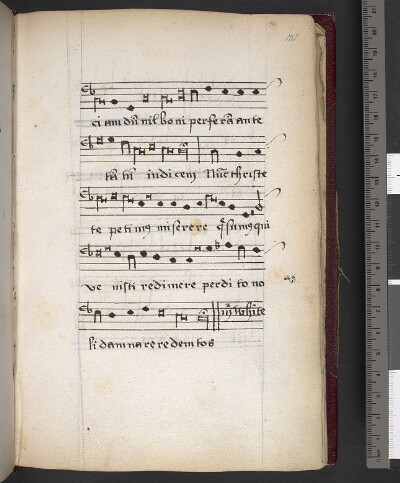 131
ciam dn̄ nil boni perferā ante
tā tī indicem Nūc christe
te petimus miserere q̄sumus qui
venisti redimere perdito no
48
li damnare redemtos